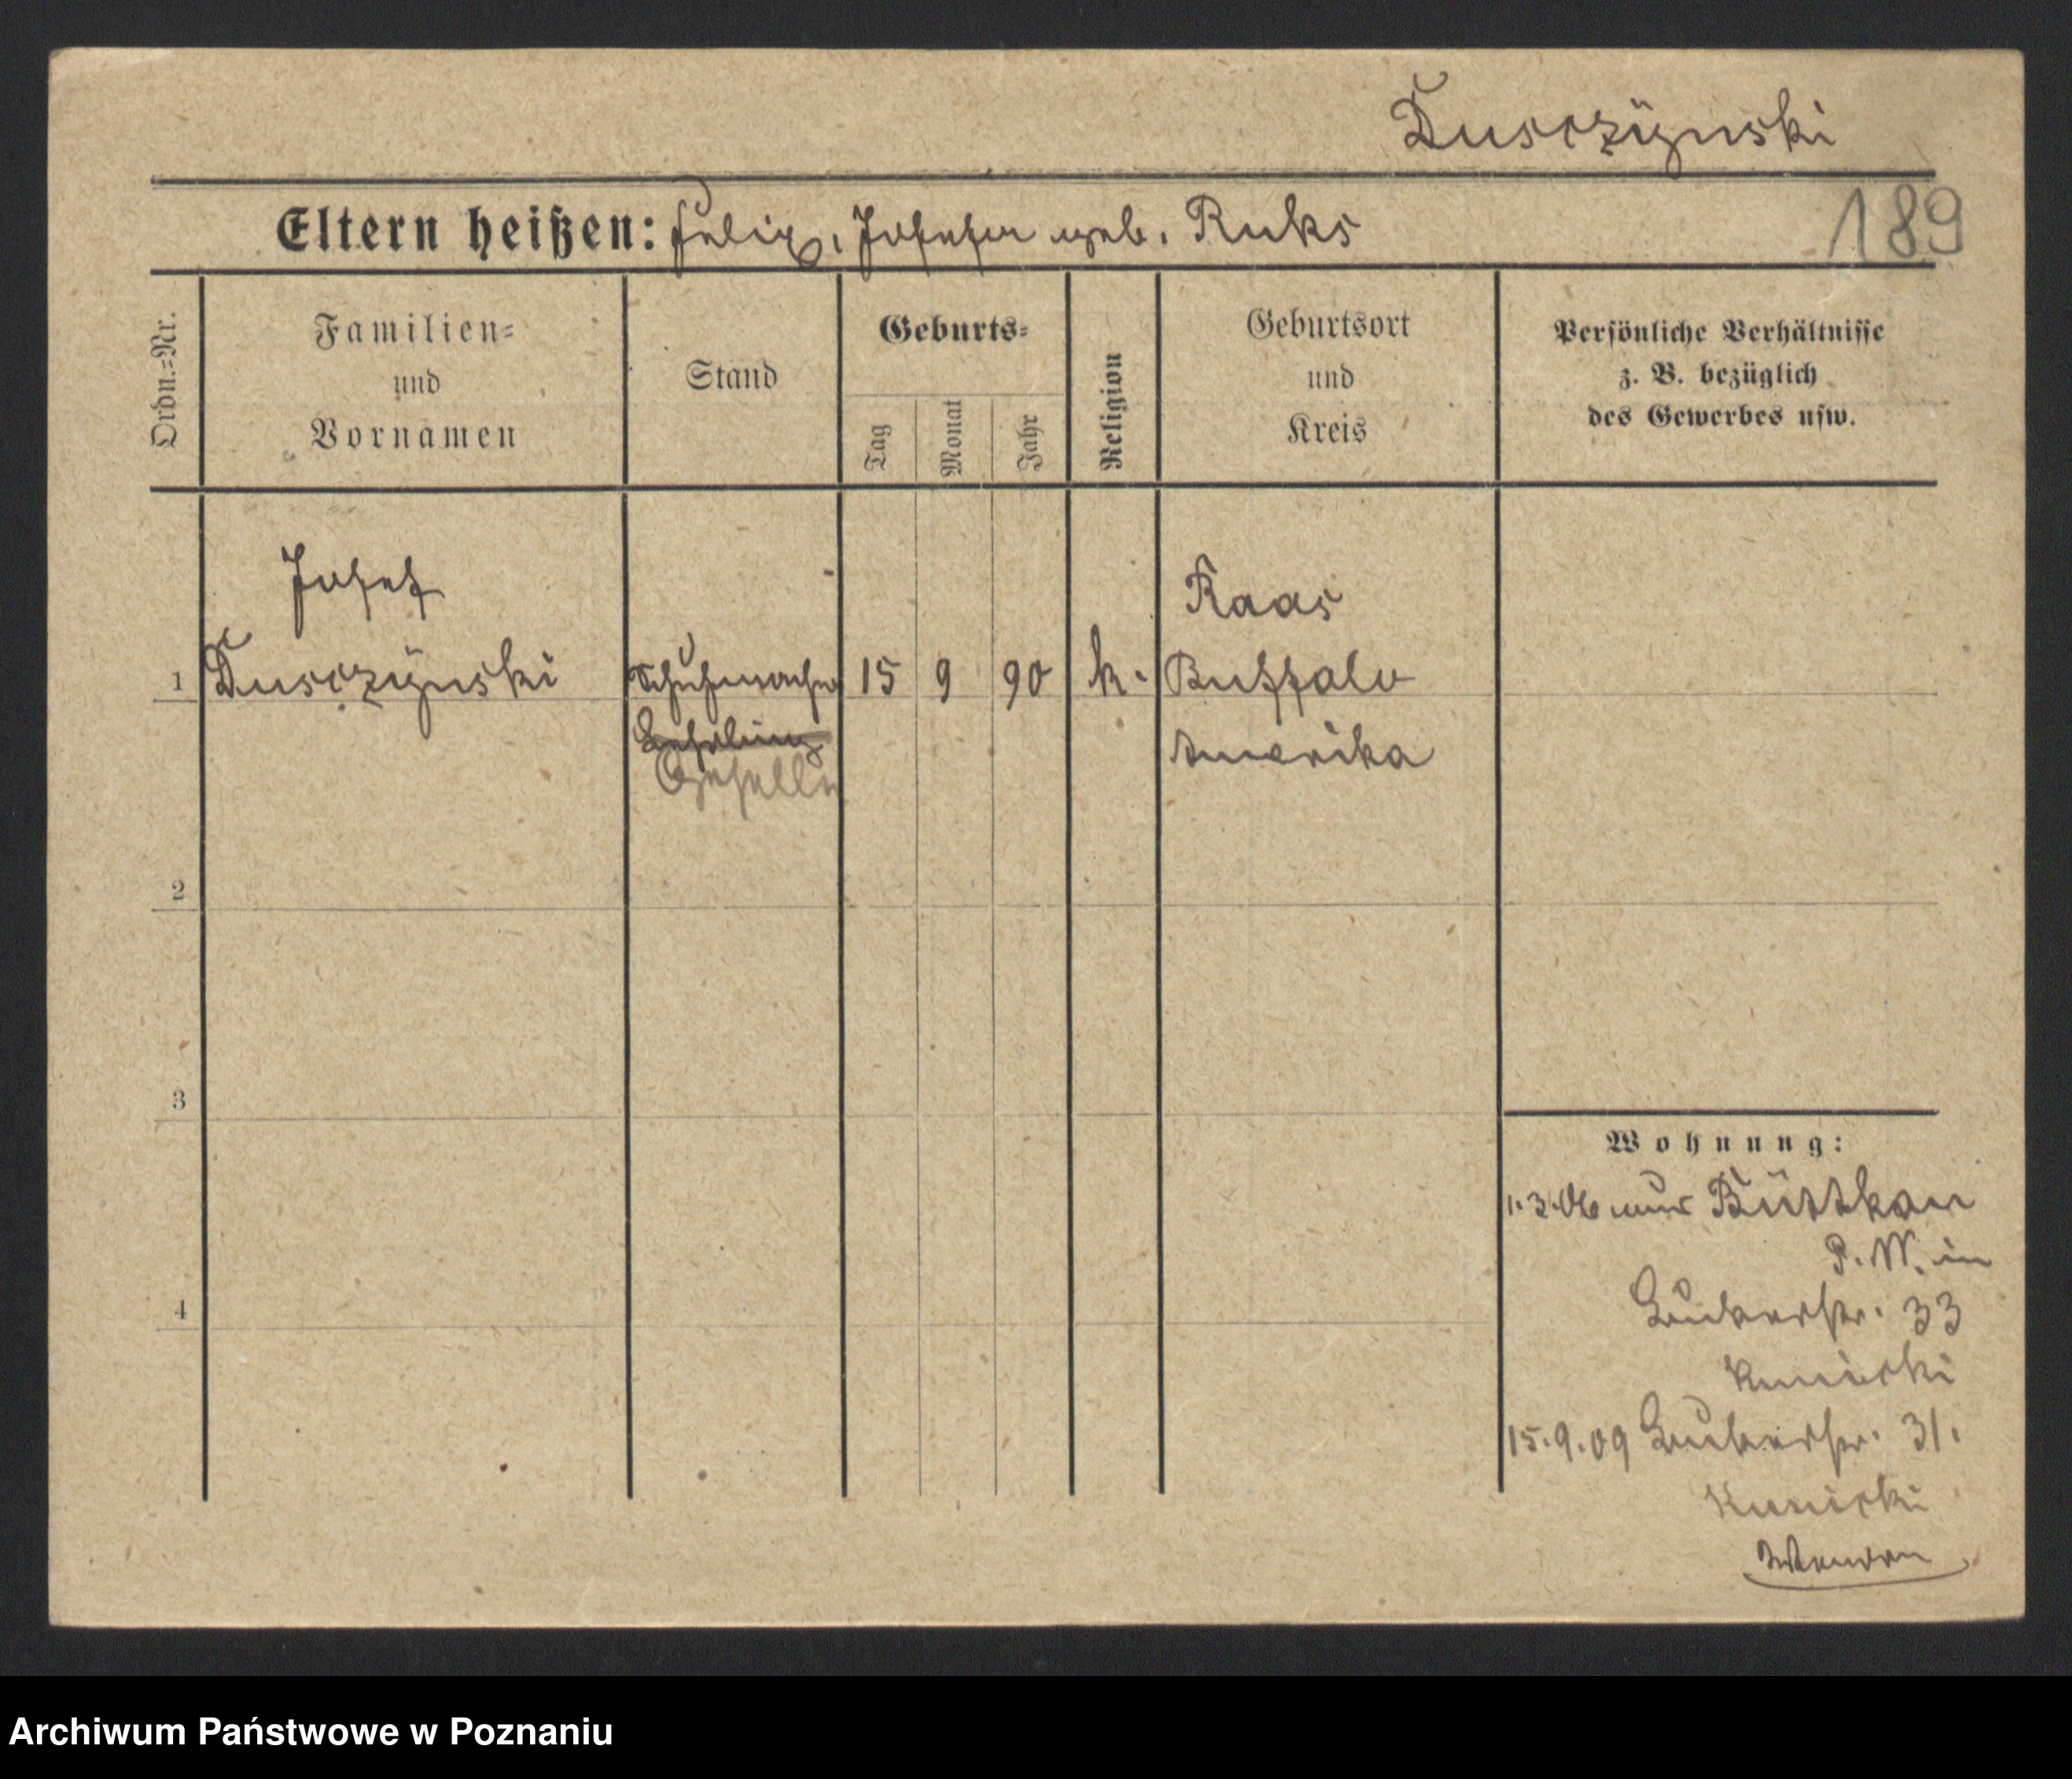 Dusczÿnski
Eltern heißen: Felix, Josefa geb. Ruks
189
Ordn.=Nr.
Familien=
und
Vornamen
Stand
Geburts=
Tag
Monat
Jahr
Religion
Geburtsort
und
Kreis
Persönliche Verhältnisse
z. B. bezüglich
des Gewerbes usw.
Josef
1 Dusczÿnski Schuhmacher 15 9 90 k. Raas
Buffalo
Lehrling
Geselle
Amerika
2
3
4
Wohnung:
1.3.06 aus
P. W. in
33
15.9.09 31.
Archiwum Państwowe w Poznaniu